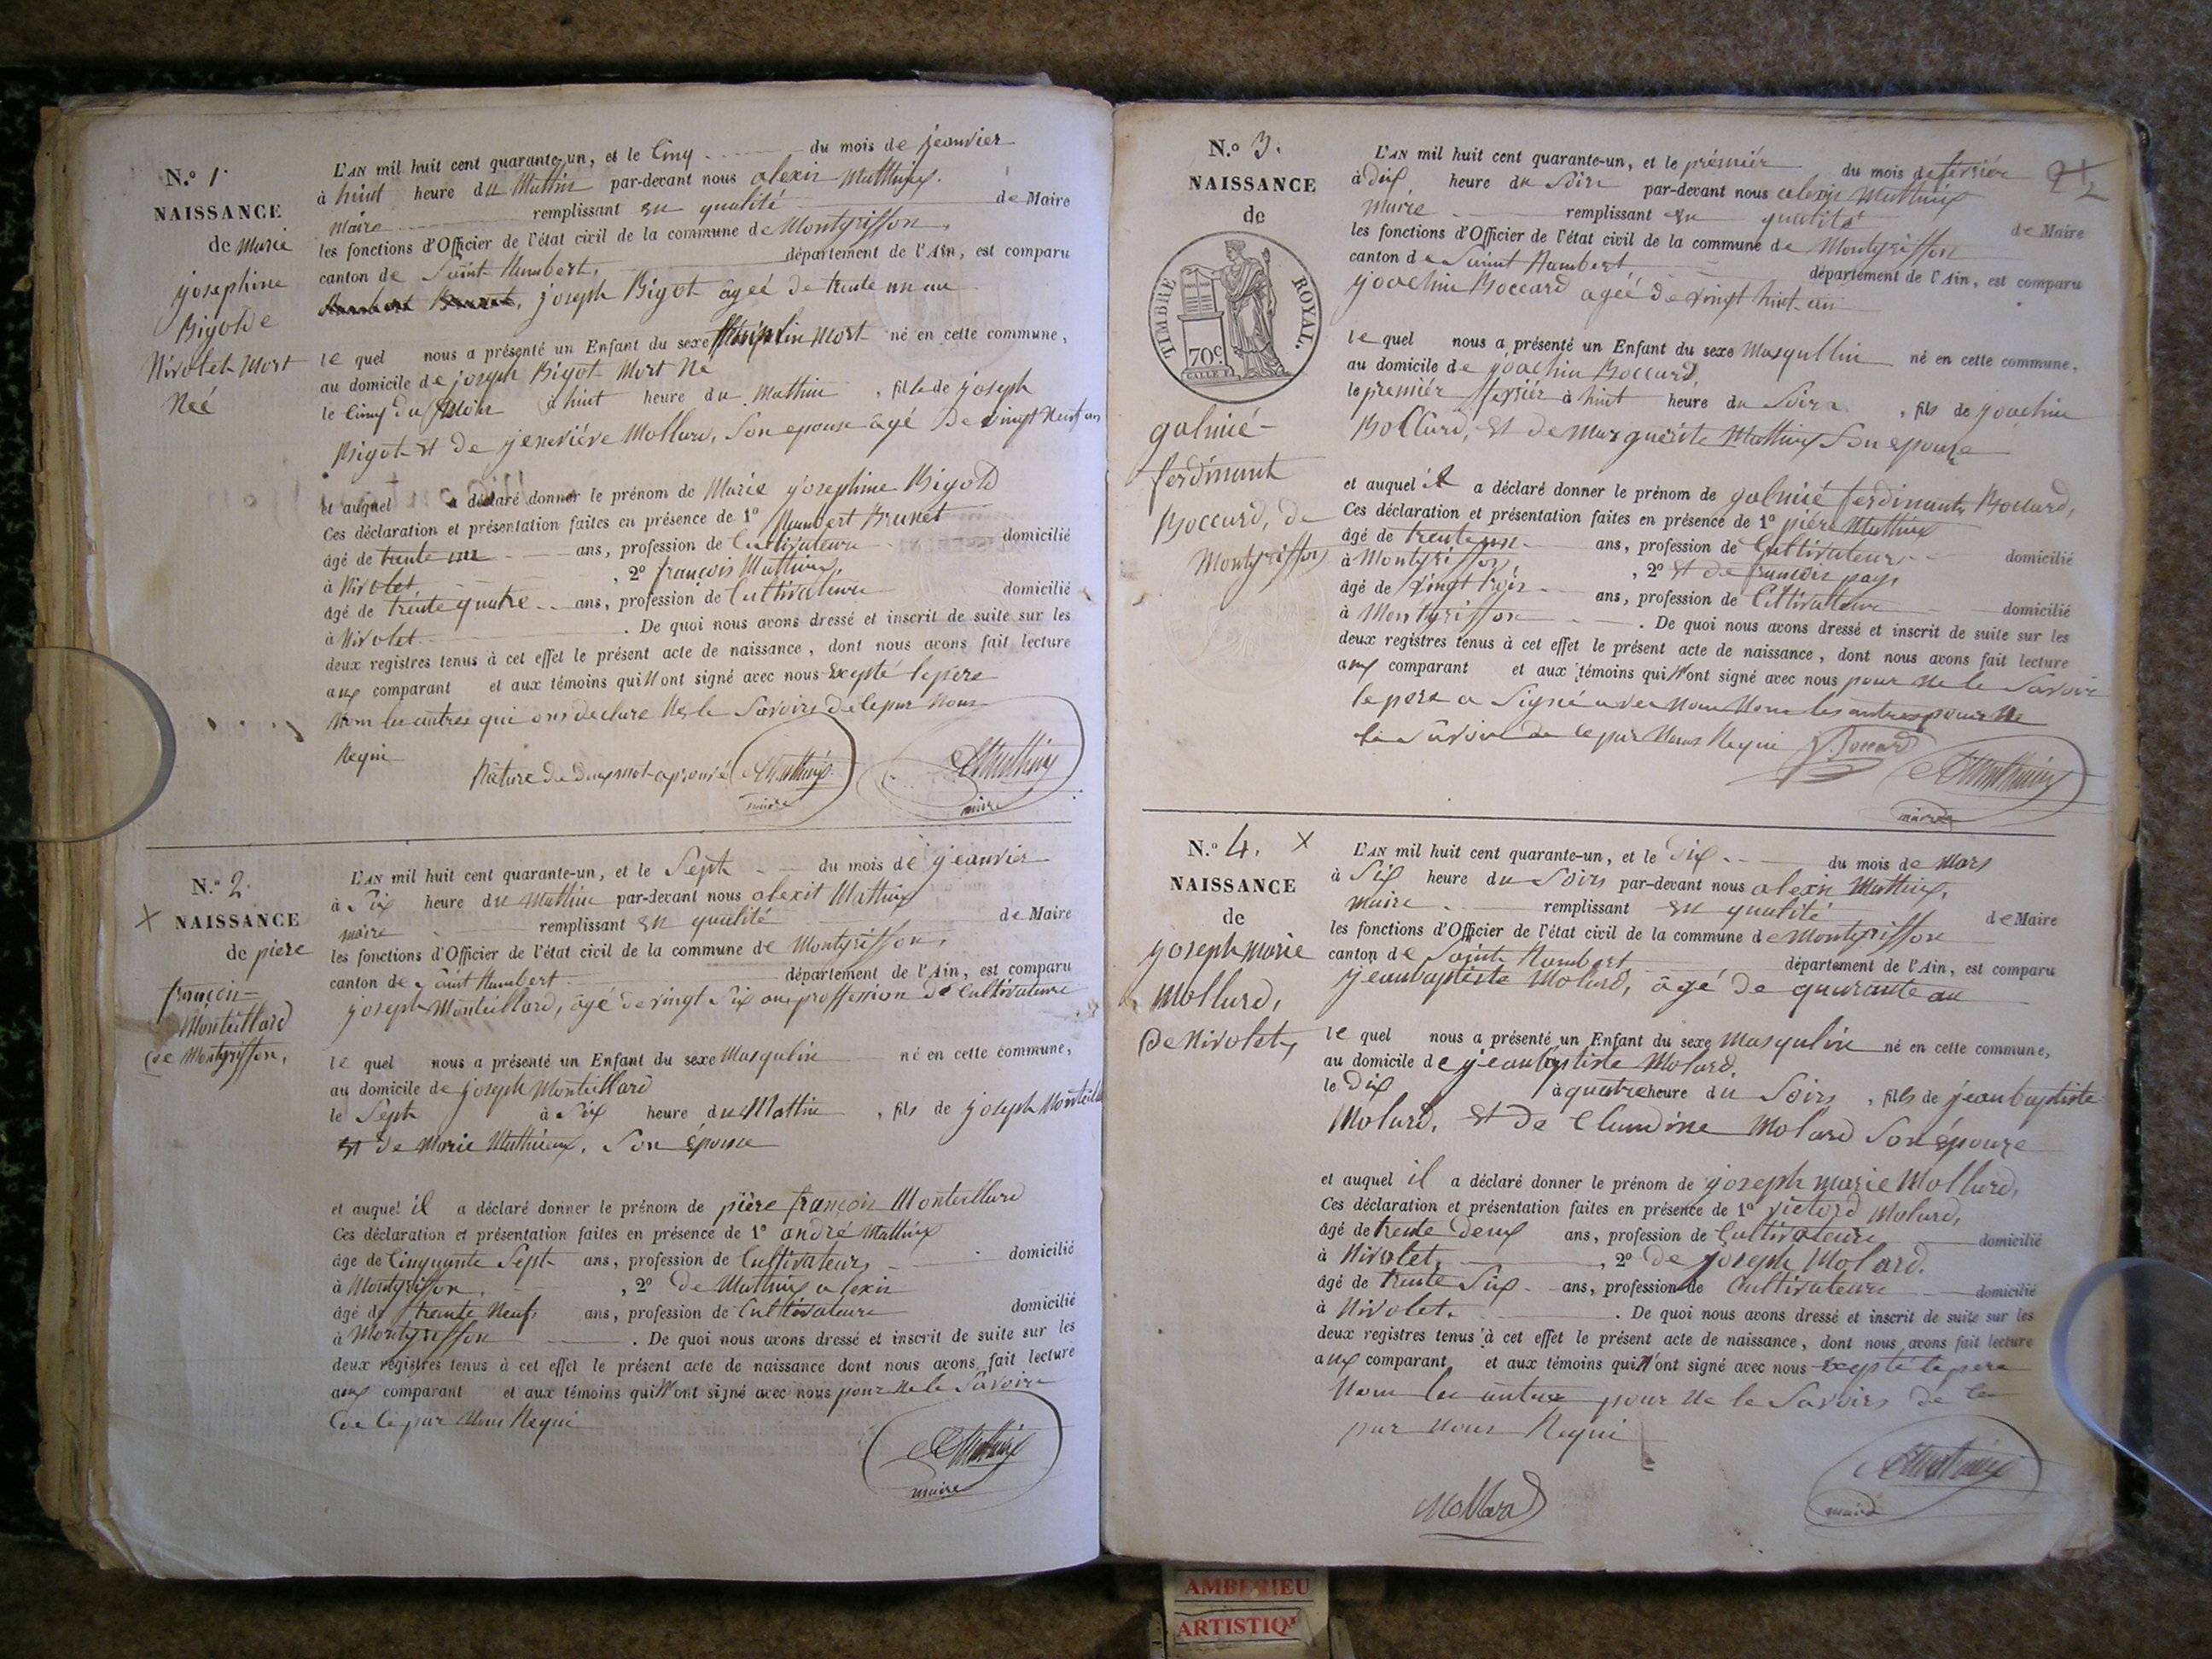 N.º 1.
NAISSANCE
de Marie
josephine
Bigot de
Nivolet Mort
Neé
L'AN mil huit cent quarante-un, et le Cinq du mois de jeanvier
à huit heure du Mattin par-devant nous alexis Mathieux.
maire remplissant en qualité de Maire
les fonctions d'Officier de l'état civil de la commune de Montgriffon,
canton de Saint Rambert, département de l'Ain, est comparu
joseph Bigot âgeé de trente un an
le quel nous a présenté un Enfant du sexe Mort né en cette commune,
au domicile de joseph Bigot Mort Né
le Cinq du Mois à huit heure du Matthin, fille de joseph
Bigot et de jeneviéve Mollard, Son epouse âgé De vingt Neuf an
et auquel a déclaré donner le prénom de Marie josephine Bigot
Ces déclaration et présentation faites en présence de 1º Humbert Brunet
âgé de trente un ans, profession de Cultivateure domicilié
à Nivolet, 2º françois Mathieux,
âgé de trente quatre ans, profession de Cultivateure domicilié
à Nivolet. De quoi nous avons dressé et inscrit de suite sur les
deux registres tenus à cet effet le présent acte de naissance, dont nous avons fait lecture
aux comparant et aux témoins qui N'ont signé avec nous Exepté le pere
Nom les autres qui ons declare Ne le Savoire de le par Nous
Requi
Râture de deux mot aprouvé AMathieux
maire
AMathieux
maire
N.º 2.
X NAISSANCE
de piere
françois
Monteillard
de Montgriffon,
L'AN mil huit cent quarante-un, et le Sept du mois de jeanvier
à Six heure du Mathin par-devant nous alexit Mathieux
maire remplissant en qualité de Maire
les fonctions d'Officier de l'état civil de la commune de Montgriffon,
canton de Saint Rambert département de l'Ain, est comparu
joseph Monteillard, âgé de vingt Six ans proffession de Cultivateure
le quel nous a présenté un Enfant du sexe Masqulin né en cette commune,
au domicile de joseph Monteillard
le Sept à Six heure du Mattin, fils de joseph Monteillard
et de Marie Mathieux, Son épouse
et auquel il a déclaré donner le prénom de piére françois Monteillard
Ces déclaration et présentation faites en présence de 1º andré Mathieux
âge de Cinquante Sept ans, profession de Cultivateurs domicilié
à Montgriffon, 2º de Mathieux alexis
âgé de trante Neuf ans, profession de Cultivateure domicilié
à Montgriffon. De quoi nous avons dressé et inscrit de suite sur les
deux registres tenus à cet effet le présent acte de naissance dont nous avons fait lecture
aux comparant et aux témoins qui N'ont signé avec nous pour Ne le Savoire
de le par Nous Requi
AMathieux
maire
N.º 3.
NAISSANCE
de
TIMBRE ROYAL.
70c
galmié
ferdinant
Boccard, de
Montgriffon
L'AN mil huit cent quarante-un, et le prémiér du mois de fevriér
à dix heure du Soire par-devant nous alexis Mathieux
maire remplissant en qualité de Maire
les fonctions d'Officier de l'état civil de la commune de Montgriffon
canton de Saint Rambert département de l'Ain, est comparu
joachin Boccard ageé de vingt huit an
le quel nous a présenté un Enfant du sexe Masqullin né en cette commune,
au domicile de joachin Boccard
le premiér fevriér à huit heure du Soire, fils de joachin
Boccard, et de Marguerite Mathieux Son epouze
et auquel il a déclaré donner le prénom de galmié ferdinants Boccard,
Ces déclaration et présentation faites en présence de 1º piére Mathieux
âgé de trente un ans, profession de Cultivateurs domicilié
à Montgriffon, 2º et de françois pays
âgé de vingt trois ans, profession de Cultivateure domicilié
à Montgriffon. De quoi nous avons dressé et inscrit de suite sur les
deux registres tenus à cet effet le présent acte de naissance, dont nous avons fait lecture
aux comparant et aux témoins qui N'ont signé avec nous pour Ne le Savoir
le pere a Signé avec Nous Nom les autres pour Ne
le Savoir de le par Nous Requi J. Boccard
AMathieux
maire
N.º 4. X
NAISSANCE
de
joseph marie
Mollard,
De Nivolet,
L'AN mil huit cent quarante-un, et le Dix du mois de Mars
à Six heure du Soirs par-devant nous alexis Mathieux,
maire remplissant en qualité de Maire
les fonctions d'Officier de l'état civil de la commune de Montgriffon
canton de Saint Rambert département de l'Ain, est comparu
jeanbaptiste Molard, âgé de quarante an
le quel nous a présenté un Enfant du sexe Masqulin né en cette commune,
au domicile de jeanbaptiste Molard.
le Dix à quatre heure du Soirs, fils de jeanbaptiste
Molard, et de Claudine Molard Son épouze
et auquel il a déclaré donner le prénom de joseph marie Mollard,
Ces déclaration et présentation faites en présence de 1º victord Molard,
âgé de trente deux ans, profession de Cultivateure domicilié
à Nivolet, 2º de joseph Molard.
âgé de trente Six ans, profession de Cultivateure domicilié
à Nivolet. De quoi nous avons dressé et inscrit de suite sur les
deux registres tenus à cet effet le présent acte de naissance, dont nous avons fait lecture
aux comparant et aux témoins qui N'ont signé avec nous Exepté le pere
Nom les autres pour Ne le Savoirs de le
par Nous Requi
Mollard
AMathieux
maire
AMBERIEU
ARTISTIQ